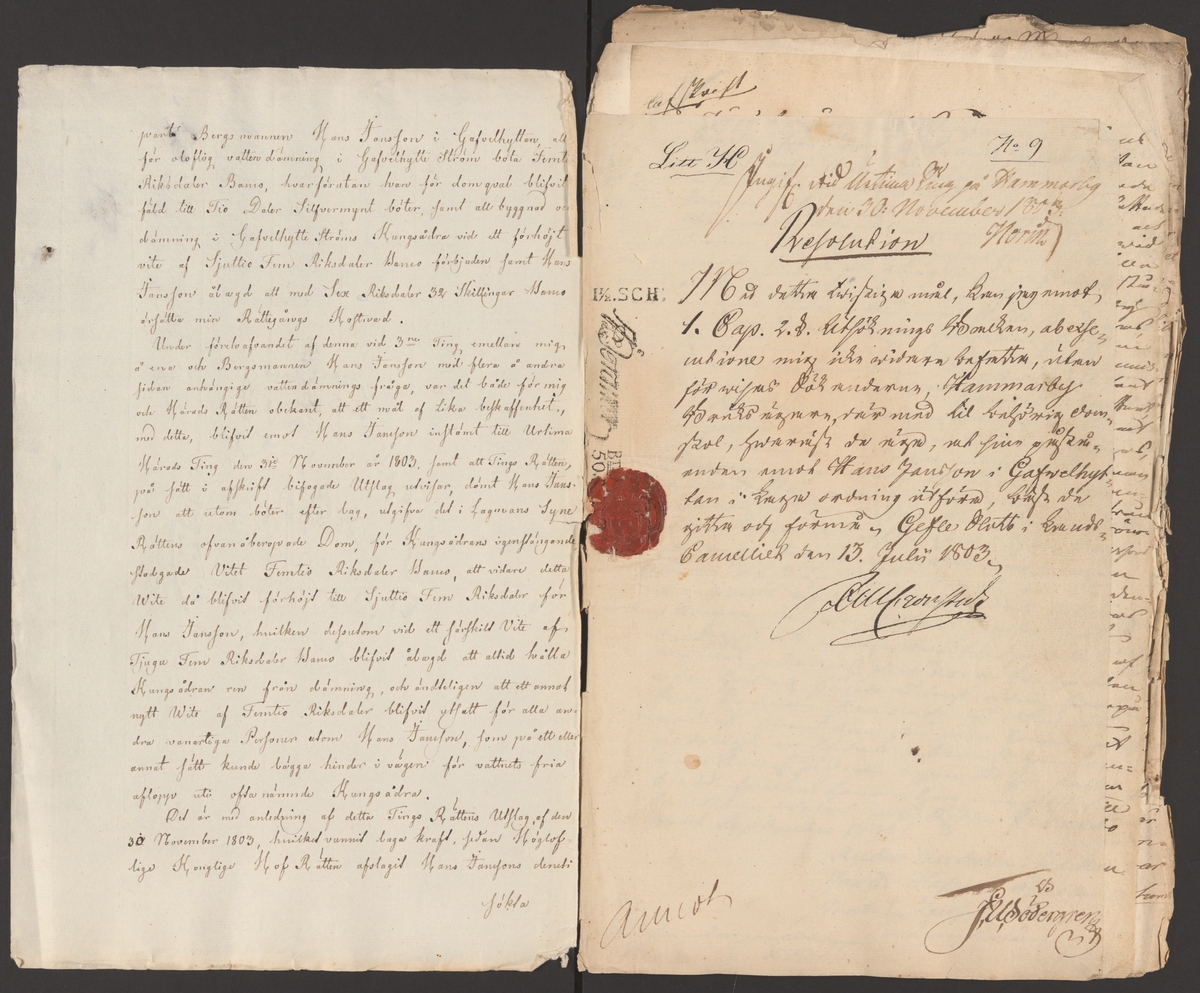 part Bergsmannen Hans Jansson i Gafvelhyttan, att
för oloflög vattendämning i Gafvelhytte Ström böta Femt
Riksdaler Banco, hvarförutan han för domqval blifvit
fäld till Tio Daler Silfvermynt böter, samt all byggnad o
dämning i Gafvelhytte Ströms Kungsådra vid ett förhöjt
vite af Sjuttio Fem Riksdaler Banco förbjuden samt Hans
Jansson ålagd att med Sex Riksdaler 32 Skillingar Banco
ersätta min Rättegångs Kostnad.
Under förehafvandet af denna vid 3ne Ting emellan mig
å ena och Bergsmannen Hans Jansson med flera å andra
sidan anhängige vattendämnings fråga, var det både för mig
och Härads Rätten obekant, att ett mål af lika beskaffenhet,
med detta, blifvit emot Hans Jansson instämt till Urtima
Härads Ting den 31 November år 1803, samt att Tings Rätten,
på sätt i afskrift bifogade Utslag utvisar, dömt Hans Jans-
son att utom böter efter lag, utgifva det i Lagvans Syne
Rättens ofvanåberopade Dom, för Kungsådrans igenstängande
stadgade Vitet Femtio Riksdaler Banco, att vidare detta
Wite då blifvit förhöjt till Sjuttio Fem Riksdaler för
Hans Jansson, hvilken dessutom vid ett särskilt Vite af
Tjugu Fem Riksdaler Banco blifvit ålagd att altid hålla
Kungsådran ren från dämning, och ändteligen att ett annat
nytt Wite af Femtio Riksdaler blifvit utsatt för alla an-
dra vanartiga Personer utom Hans Jansson, som på ett eller
annat sätt kunde lägga hinder i vägen för vattnets fria
aflopp uti oftanämnde Kungsådra.
Det är med anledning af detta Tings Rättens Utslag af den
30 November 1803, hvilket vunnit laga kraft, sedan Höglof-
lige Konglige Hof Rätten afslagit Hans Janssons
sökta
Afskrift
Litt
No 9
Ingif. vid Urtima Ting på Hammarby
den 30 November 1803.
Norin
Resolution
Med detta twistiga mål, kan jag emot
1. Cap. 2. §. Utsöknings Balken, ab exse-
cutione mig icke widare befatta, utan
förwises Sökanderne, Hammarby
Bruksägare, därmed til behörig dom-
stol, hwarest de äga, at sine påstå-
enden emot Hans Jansson i Gafwelhyt-
tan i laga ordning utföra, bäst de
gitta och förmå. Gefle Slott i Lands-
Cancelliet den 13. Julii 1803.
1½.SCH:
50
annot
Södergren